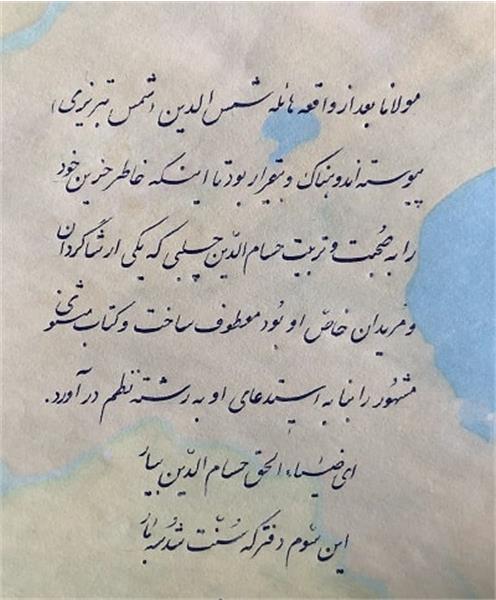 مولانا بعد از واقعه هائله شمس الدین (شمس تبریزی)
پیوسته اندوهناک و بیقرار بود تا اینکه خاطر حزین خود
را به صُحبت و تربیت حسام الدّین چلبی که یکی از شاگردان
و مُریدان خاصّ او بُود معطوف ساخت و کتاب مثنوی
مشهُور را بنا به استدعای او به رشته نظم در آورد.
ای ضیاء الحق حسام الدّین بیار
این سّوم دفتر که سُنّت شد سه بار